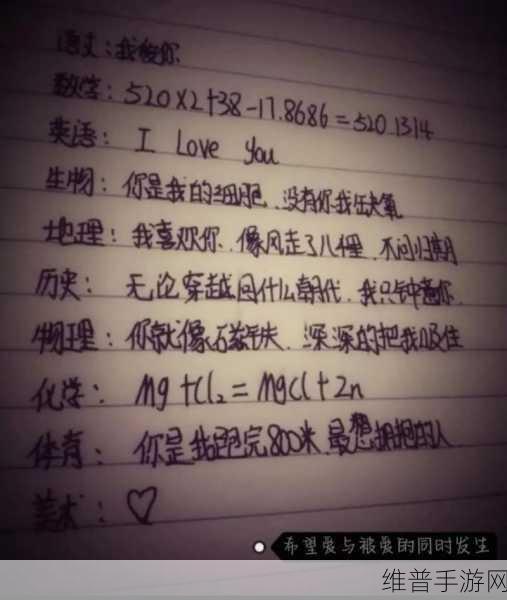 语文:我爱你
数学:520×2+38-17.8686=520.1314
英语: I Love You
生物:你是我的细胞、没有你我缺氧
地理:我喜欢你、像风走了八千里、不问归期
历史:无论穿越回什么朝代、我只钟意你
物理:你就像石磁铁、深深的把我吸住
化学: Mg+Cl₂=MgCl+Zn
体育:你是我跑完800米、最想拥抱的人
美术:♡
希望爱与被爱的同时发生
维普手游网